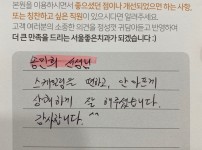 본원을 이용하시면서 좋으셨던 점이나 개선되었으면 하는 사항,
또는 칭찬하고 싶은 직원이 있으시다면 알려주세요.
고객 여러분의 소중한 의견을 정성껏 귀담아듣고 반영하여
더 큰 만족을 드리는 서울좋은치과가 되겠습니다 :)
선생님
스케일링을 편하고, 안 아프게
섬세하게 잘 해주셨습니다.
감사합니다. ^^